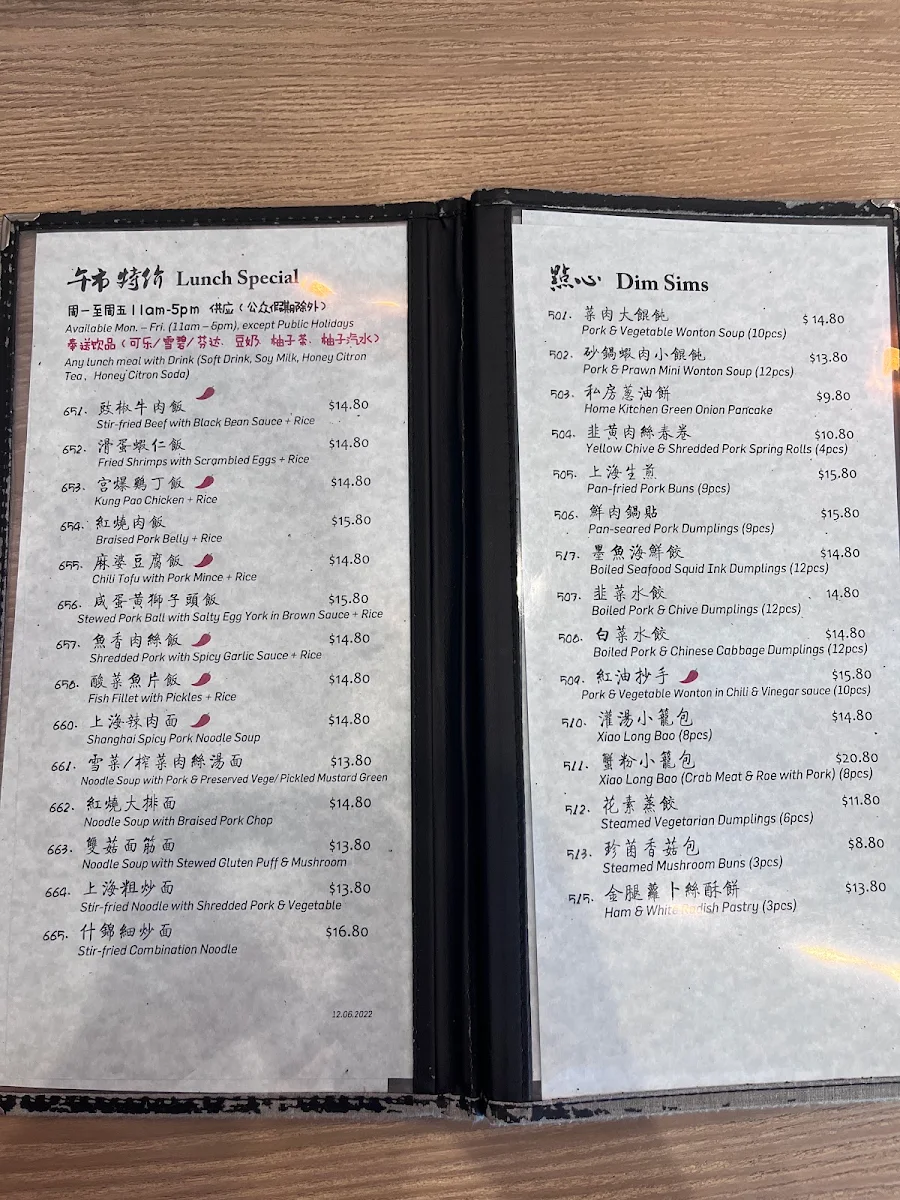 午市特价 Lunch Special
周一至周五11am-5pm 供应(公众假期除外)
Available Mon. – Fri. (11am – 5pm), except Public Holidays
奉送饮品(可乐/雪碧/芬达、豆奶 柚子茶、柚子汽水)
Any lunch meal with Drink (Soft Drink, Soy Milk, Honey Citron
Tea, Honey Citron Soda)
651. 豉椒牛肉飯 $14.80
Stir-fried Beef with Black Bean Sauce + Rice
652. 滑蛋蝦仁飯 $14.80
Fried Shrimps with Scrambled Eggs + Rice
653. 宮爆鷄丁飯 $14.80
Kung Pao Chicken + Rice
654. 紅燒肉飯 $15.80
Braised Pork Belly + Rice
655. 麻婆豆腐飯 $14.80
Chili Tofu with Pork Mince + Rice
656. 咸蛋黃獅子頭飯 $15.80
Stewed Pork Ball with Salty Egg York in Brown Sauce + Rice
657. 魚香肉絲飯 $14.80
Shredded Pork with Spicy Garlic Sauce + Rice
658. 酸菜魚片飯 $14.80
Fish Fillet with Pickles + Rice
660. 上海辣肉面 $14.80
Shanghai Spicy Pork Noodle Soup
661. 雪菜/榨菜肉絲湯面 $13.80
Noodle Soup with Pork & Preserved Vege/ Pickled Mustard Green
662. 紅燒大排面 $14.80
Noodle Soup with Braised Pork Chop
663. 雙菇面筋面 $13.80
Noodle Soup with Stewed Gluten Puff & Mushroom
664. 上海粗炒面 $13.80
Stir-fried Noodle with Shredded Pork & Vegetable
665. 什錦細炒面 $16.80
Stir-fried Combination Noodle
12.06.2022
點心 Dim Sims
501. 菜肉大餛飩 $14.80
Pork & Vegetable Wonton Soup (10pcs)
502. 砂鍋蝦肉小餛飩 $13.80
Pork & Prawn Mini Wonton Soup (12pcs)
503. 私房蔥油餅 $9.80
Home Kitchen Green Onion Pancake
504. 韭黃肉絲春卷 $10.80
Yellow Chive & Shredded Pork Spring Rolls (4pcs)
505. 上海生煎 $15.80
Pan-fried Pork Buns (9pcs)
506. 鮮肉鍋貼 $15.80
Pan-seared Pork Dumplings (9pcs)
517. 墨魚海鮮餃 $14.80
Boiled Seafood Squid Ink Dumplings (12pcs)
507. 韭菜水餃 14.80
Boiled Pork & Chive Dumplings (12pcs)
508. 白菜水餃 $14.80
Boiled Pork & Chinese Cabbage Dumplings (12pcs)
509. 紅油抄手 $15.80
Pork & Vegetable Wonton in Chili & Vinegar sauce (10pcs)
510. 灌湯小籠包 $14.80
Xiao Long Bao (8pcs)
511. 蟹粉小籠包 $20.80
Xiao Long Bao (Crab Meat & Roe with Pork) (8pcs)
512. 花素蒸餃 $11.80
Steamed Vegetarian Dumplings (6pcs)
513. 珍菌香菇包 $8.80
Steamed Mushroom Buns (3pcs)
515. 金腿蘿卜絲酥餅 $13.80
Ham & White Radish Pastry (3pcs)